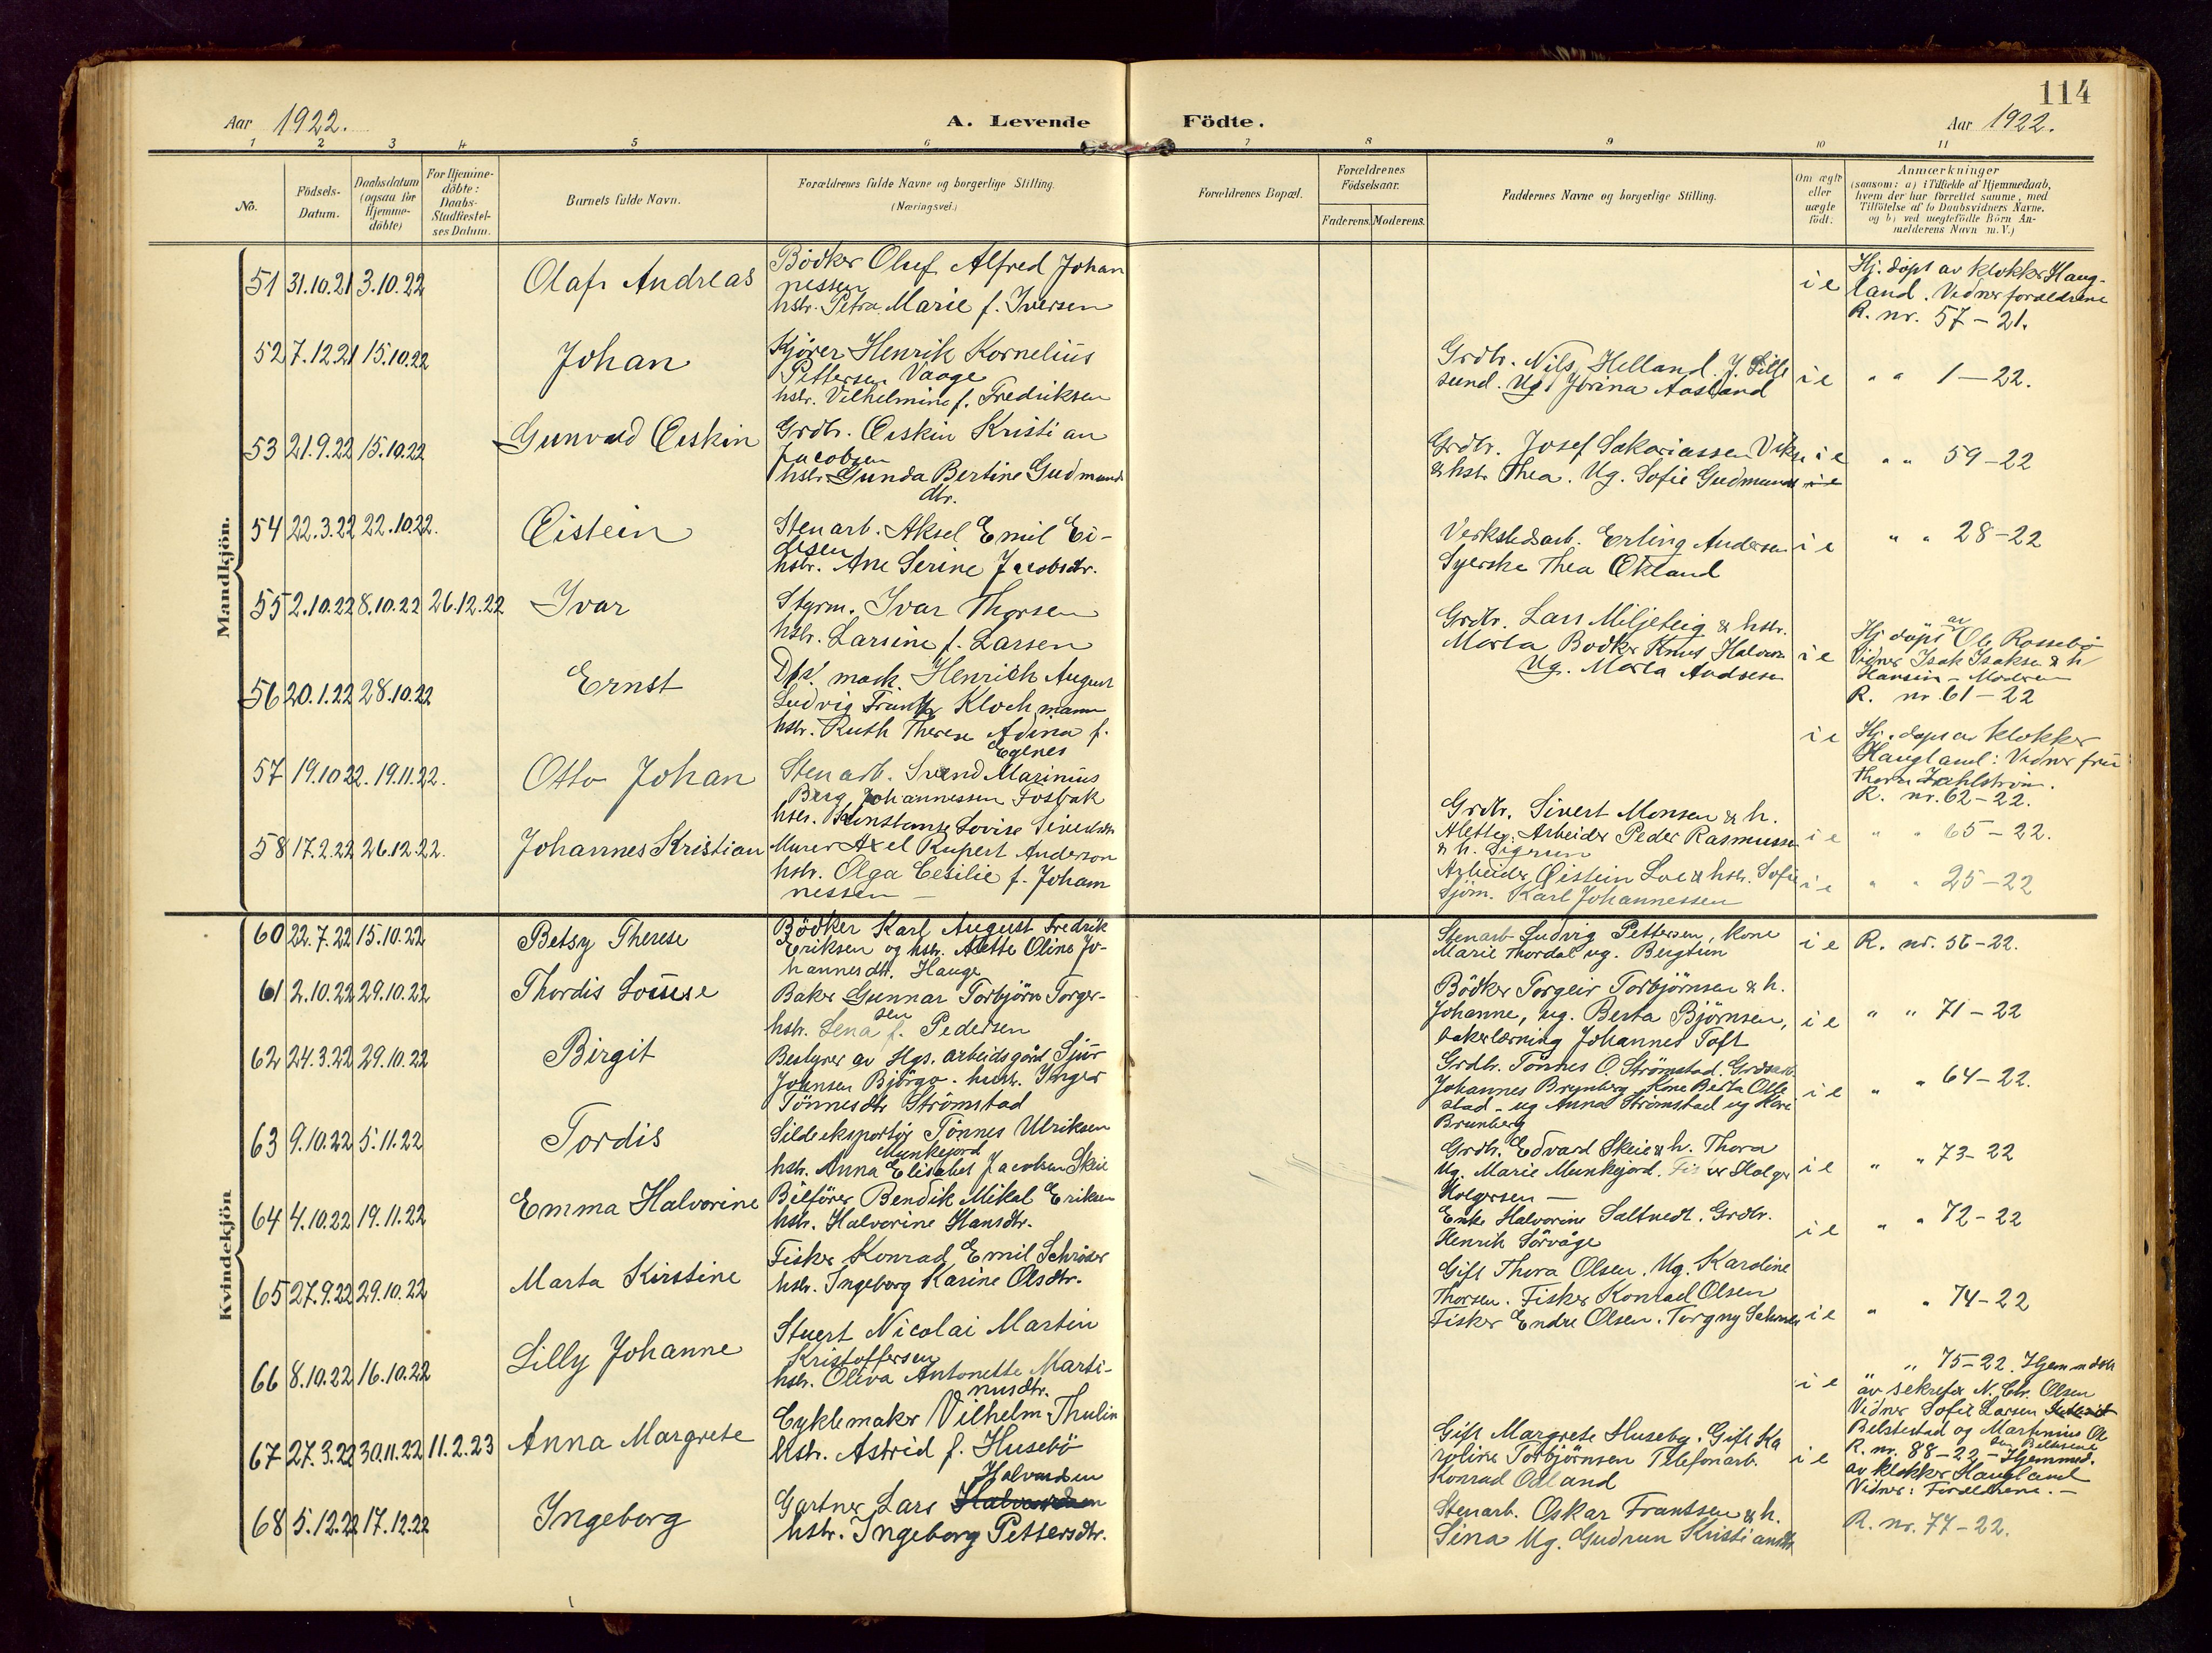 114
Aar 1922.
A. Levende Födte.
Aar 1922.
1 2 3 4 5 6 7 8 9 10 11
No.
Födsels-
Datum.
Daabsdatum
(ogsaa for
Hjemme-
döbte)
For Hjemme-
döbte:
Daabs-
Stadfæstel-
ses Datum.
Barnets fulde Navn.
Forældrenes fulde Navne og borgerlige Stilling.
(Næringsvei.)
Forældrenes Bopæl.
Forældrenes
Födselsaar.
Faderens. Moderens.
Faddernes Navne og borgerlige Stilling.
Om ægte
eller
uægte
födt.
Anmærkninger
(saasom: a) i Tilfælde af Hjemmedaab,
hvem der har forrettet samme, med
Tilföielse af to Daabsvidners Navne.
og b) ved uægtefödte Börn An-
melderens Navn m. V.)
Mandkjön.
51 31.10.21 3.10.22 Olaf Andreas
Bödker Oluf Alfred Johan
nessen
hstr. Petra Marie f. Iversen
i e
Hj. döpt av klokker Haug-
land. Vidner forældrene
R. nr. 57-21.
52 7.12.21 15.10.22 Johan
Kjörer Henrik Kornelius
Pettersen Vaage
hstr. Vilhelmine f. Fredriksen
Grdbr. Nils Helland. J. Lille
sund. Ug. Jorina Aasland
i e " " 1-22.
53 21.9.22 15.10.22 Gunvald Erskin
Grdbr. Erskin Kristian
Jacobsen
hstr. Gunda Bertine Gudmunds
dtr.
Grdbr. Josef Sakariassen Vikse
& hstr. Thea. Ug. Sofie Gudmunds
i e " " 59-22
54 22.3.22 22.10.22. Eistein
Stenarb. Aksel Emil Ei-
desen
hstr. Ane Serine Jacobsdtr.
Verkstedsarb. Erling Andersen
Syerske Thea Økland
i e " " 28-22
55 2.10.22 8.10.22 26.12.22 Ivar
Styrm. Ivar Thorsen
hstr. Larsine f. Larsen
Grdbr. Lars Miljeteig & hstr.
Marta, Bödker Knut Halvor
Ug. Marta Andresen
i e
Hj. döpt av Ole Rossebö
Vidner Isak Isaksen & h
R. nr. 61-22
56 20.1.22 28.10.22 Ernst
Henrich August
Ludvig Frantz Klochmann
hstr. Ruth Therese Adina f.
Egenes
i e
Hj. döpt av klokker
Haugland: Vidner fru
R. nr. 62-22.
57 19.10.22. 19.11.22. Otto Johan
Stenarb. Svend Marinius
Berg Johannessen Fosbak
hstr. Konstanse Lovise Sivertsdtr
Grdbr. Sivert Monsen & h.
Alette, Arbeider Peder Rasmussen
& h. Sigrun
i e " " 65-22.
58 17.2.22 26.12.22. Johannes Kristian
Murer Axel Rupert Anderson
hstr. Olga Cesilie f. Johan
nessen
Arbeider Øistein Loe & hstr. Sofie
Sjöm. Karl Johannessen
i e " " 25-22
Kvindekjön
60 22.7.22 15.10.22 Betsy Therese
Bödker Karl August Fredrik
Eriksen og hstr. Alette Oline Jo-
hannesdtr. Hauge
Stenarb Ludvig Pettersen, kone
Marie Thordal ug. Bergtun
i e R. nr. 56-22.
61 2.10.22 29.10.22 Thordis Louise
Baker Gunnar Torbjörn Torger-
sen
hstr. Lena f. Pedersen
Bödker Torgeir Torbjörnsen & h.
Johanne, ug. Berta Björnsen,
bakerlærning Johannes Toft
i e " " 71-22
62 24.3.22 29.10.22 Birgit
Bestyrer av Hgs. arbeidsgård Sjur
Johnsen Björgo. hustr. Inger
Tönnesdtr Strömstad
Grdbr. Tönnes O. Strömstad. Grdsarb.
Johannes Brynberg Kone Berta Olle
stad - ug Anna Strömstad ug Kari
Brunberg
i e " " 64-22.
63 9.10.22 5.11.22 Tordis
Sildeeksportör Tönnes Ulriksen
Munkejord
hstr. Anna Elisabet Jacobsen Skeie
Grdbr. Edvard Skeie & h. Thora
Ug. Marie Munkejord. Fisker Holger
Holgersen
i e " " 73-22
64 4.10.22 19.11.22 Emma Halvorine
Bilförer Bendik Mikal Eriksen
hstr. Halvorine Hansdtr.
Enke Halvorine Saltvedt. Grdbr.
Henrik Sörvåge
i e " " 72-22
65 27.9.22 29.10.22 Marta Kirstine
Fisker Konrad Emil Schröder
hstr. Ingeborg Karine Olsdtr.
Gift Thora Olsen. Ug. Karoline
Thorsen. Fisker Konrad Olsen
Fisker Endre Olsen. Torgny
i e " " 74-22
66 8.10.22 16.10.22 Lilly Johanne
Stuert Nicolai Martin
Kristoffersen
hstr. Oliva Antonette Marti-
nusdtr.
i e
" 75-22. Hjemmedöbt
av sekretær N. Chr. Olsen
Vidner Sofie Larsen
Belstestad og Martinius Ol
67 27.3.22 30.11.22 11.2.23 Anna Margrete
Cyklemaker Vilhelm Thulin
hstr. Astrid f. Husebö
Gift Margrete Huseby. Gift Ka
roline Torbjörnsen Telefonarb.
Konrad Odland
i e
R. nr. 88-22 - Hjemmed.
av klokker Haugland
Vidner: Foreldrene.
68 5.12.22 17.12.22 Ingeborg
Halvardsen
Gartner Lars
hstr. Ingeborg Pettersdtr.
Stenarb. Oskar Frantssen & h.
Sina Ug. Gudrun Kristiansdtr
R. nr. 77-22.